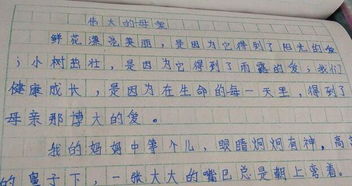 伟大的母爱
鲜花漂亮美丽，是因为它得到了阳光的爱
；小树茁壮，是因为它得到了雨露的爱；我们
健康成长，是因为在生命的每一天里，得到了
母亲那博大的爱。
我的妈妈中等个儿，眼睛炯炯有神，高
的鼻子下，一张大大的嘴巴总是朝上弯着。